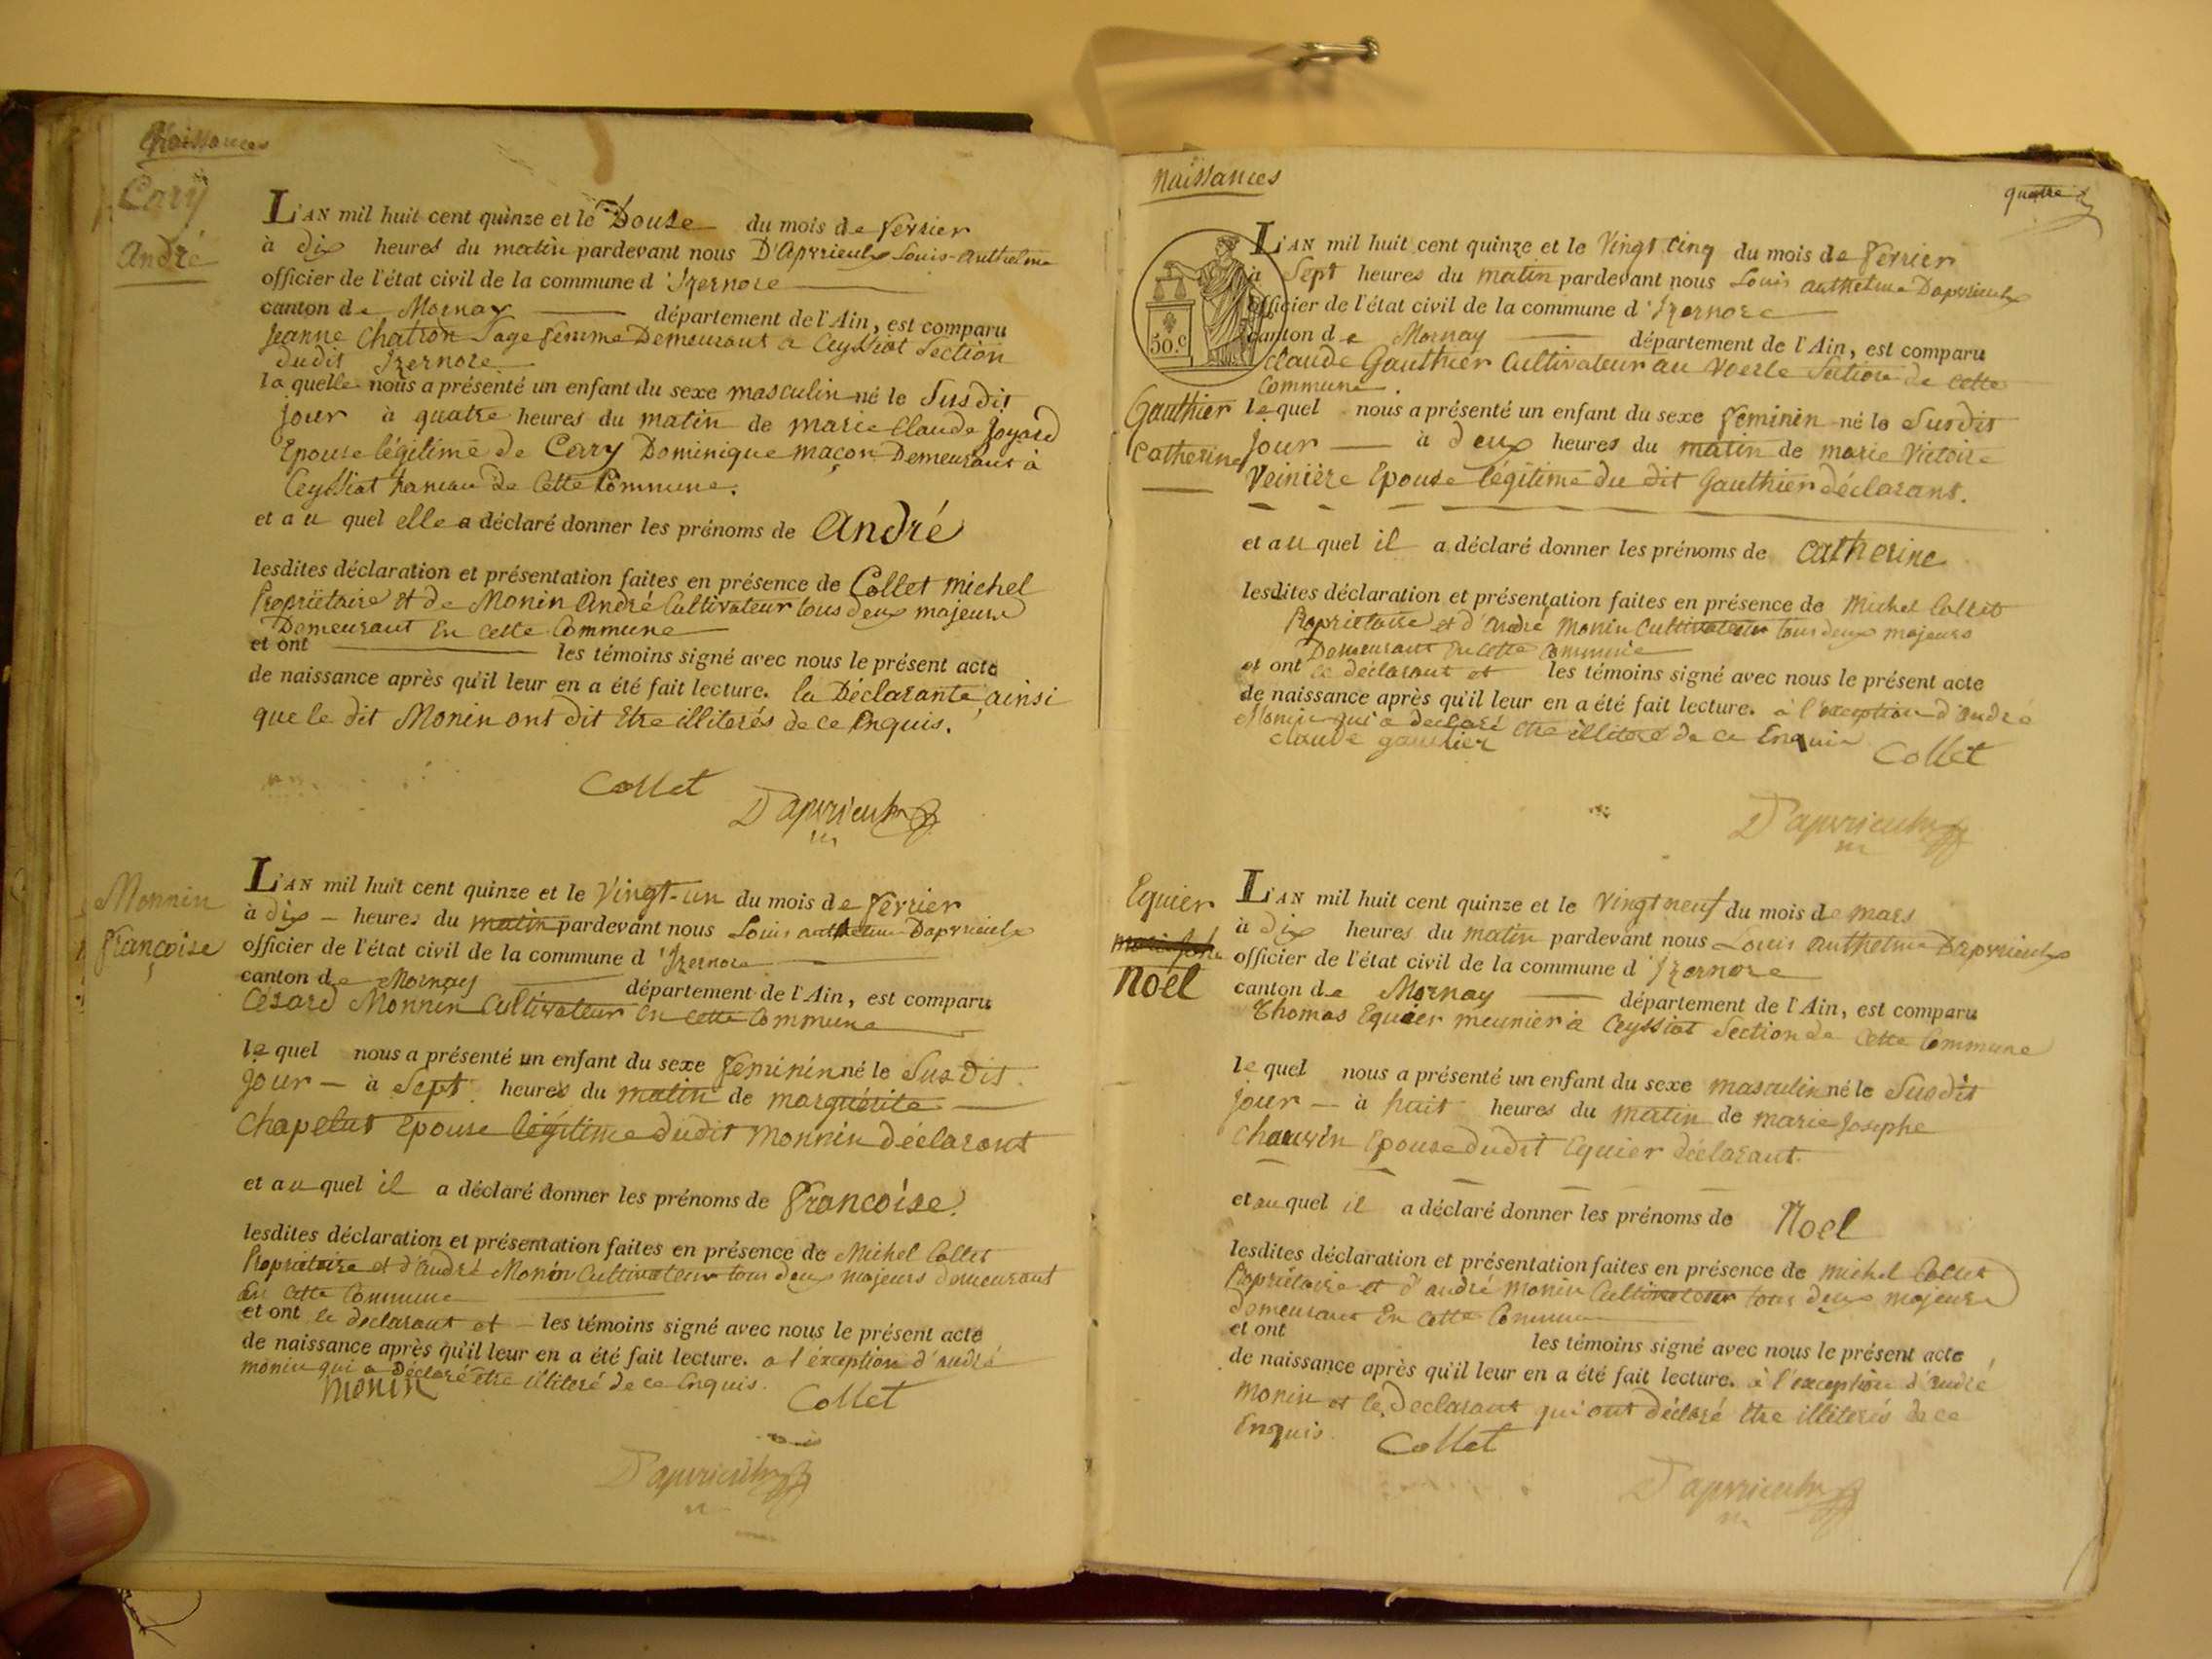 Naissances
Cary
André
L'AN mil huit cent quinze et le Douze du mois de fevrier
à dix heures du matin pardevant nous D'Apvrieulx Louis-Anthelme
officier de l'état civil de la commune d'Izernore
canton de Mornay département de l'Ain, est comparu
Jeanne Chatron Sage femme Demeurant a Ceyssiat Section
dudit Izernore
laquelle nous a présenté un enfant du sexe masculin né le Susdit
jour à quatre heures du matin de marie Claude Joyard
Epouse légitime de Cerry Dominique maçon Demeurant à
Ceyssiat hameau de Cette Commune.
et au quel elle a déclaré donner les prénoms de André
lesdites déclaration et présentation faites en présence de Collet michel
Propriétaire et de Monin André Cultivateur tous deux majeurs
Demeurant En Cette Commune
et ont les témoins signé avec nous le présent acte
de naissance après qu'il leur en a été fait lecture. la Déclarante ainsi
que le dit Monin ont dit Etre illiterés de ce Enquis.
Collet
D'apvrieulx
Monnin
françoise
L'AN mil huit cent quinze et le Vingt-un du mois de fevrier
à dix heures du matin pardevant nous Louis anthelme Dapvrieulx
officier de l'état civil de la commune d'Izernore
canton de Mornay département de l'Ain, est comparu
Césard Monnin Cultivateur en cette Commune
le quel nous a présenté un enfant du sexe feminin né le Susdit
jour à Sept heures du matin de marguérite
Chapelut Epouse légitime dudit Monnin déclarant
et au quel il a déclaré donner les prénoms de françoise.
lesdites déclaration et présentation faites en présence de Michel Collet
Propriétaire et d'André Monin Cultivateur tous deux majeurs demeurant
En Cette Commune
et ont le declarant et les témoins signé avec nous le présent acte
de naissance après qu'il leur en a été fait lecture. a l'éxception d'andré
monin qui a Déclaré Etre illiteré de ce Enquis.
monin Collet
D'apvrieulx
Naissances
quatre
50.c
L'AN mil huit cent quinze et le Vingt cinq du mois de fevrier
à Sept heures du matin pardevant nous Louis anthelme Dapvrieulx
officier de l'état civil de la commune d'Izernore
canton de Mornay département de l'Ain, est comparu
Claude Gauthier Cultivateur au Voerle Section de Cette
Commune.
Gauthier
Catherine
le quel nous a présenté un enfant du sexe feminin né le Susdit
Jour à deux heures du matin de marie Victoire
Veinière Epouse légitime du dit Gauthier déclarant.
et au quel il a déclaré donner les prénoms de Catherine
lesdites déclaration et présentation faites en présence de Michel Collet
Propriétaire et d'André Monin Cultivateur tous deux majeurs
Demeurant En Cette Commune
et ont le déclarant et les témoins signé avec nous le présent acte
de naissance après qu'il leur en a été fait lecture. à l'exception d'andré
Monin qui a declaré Etre illiteré de ce Enquis
claude gautier Collet
D'apvrieulx
Equier
Noël
L'AN mil huit cent quinze et le Vingt neuf du mois de mars
à dix heures du matin pardevant nous Louis anthelme Dapvrieulx
officier de l'état civil de la commune d'Izernore
canton de Mornay département de l'Ain, est comparu
Thomas Equier meunier à Ceyssiat Section de Cette Commune
le quel nous a présenté un enfant du sexe masculin né le Susdit
jour à huit heures du matin de marie Josephe
Chauvin Epouse dudit Equier déclarant.
et au quel il a déclaré donner les prénoms de Noel
lesdites déclaration et présentation faites en présence de Michel Collet
Propriétaire et d'andré monin Cultivateur tous deux majeurs
demeurant En Cette Commune
et ont les témoins signé avec nous le présent acte
de naissance après qu'il leur en a été fait lecture. à l'exception d'andré
Monin et le Declarant qui ont déclaré Etre illiterés de ce
Enquis. Collet
D'apvrieulx